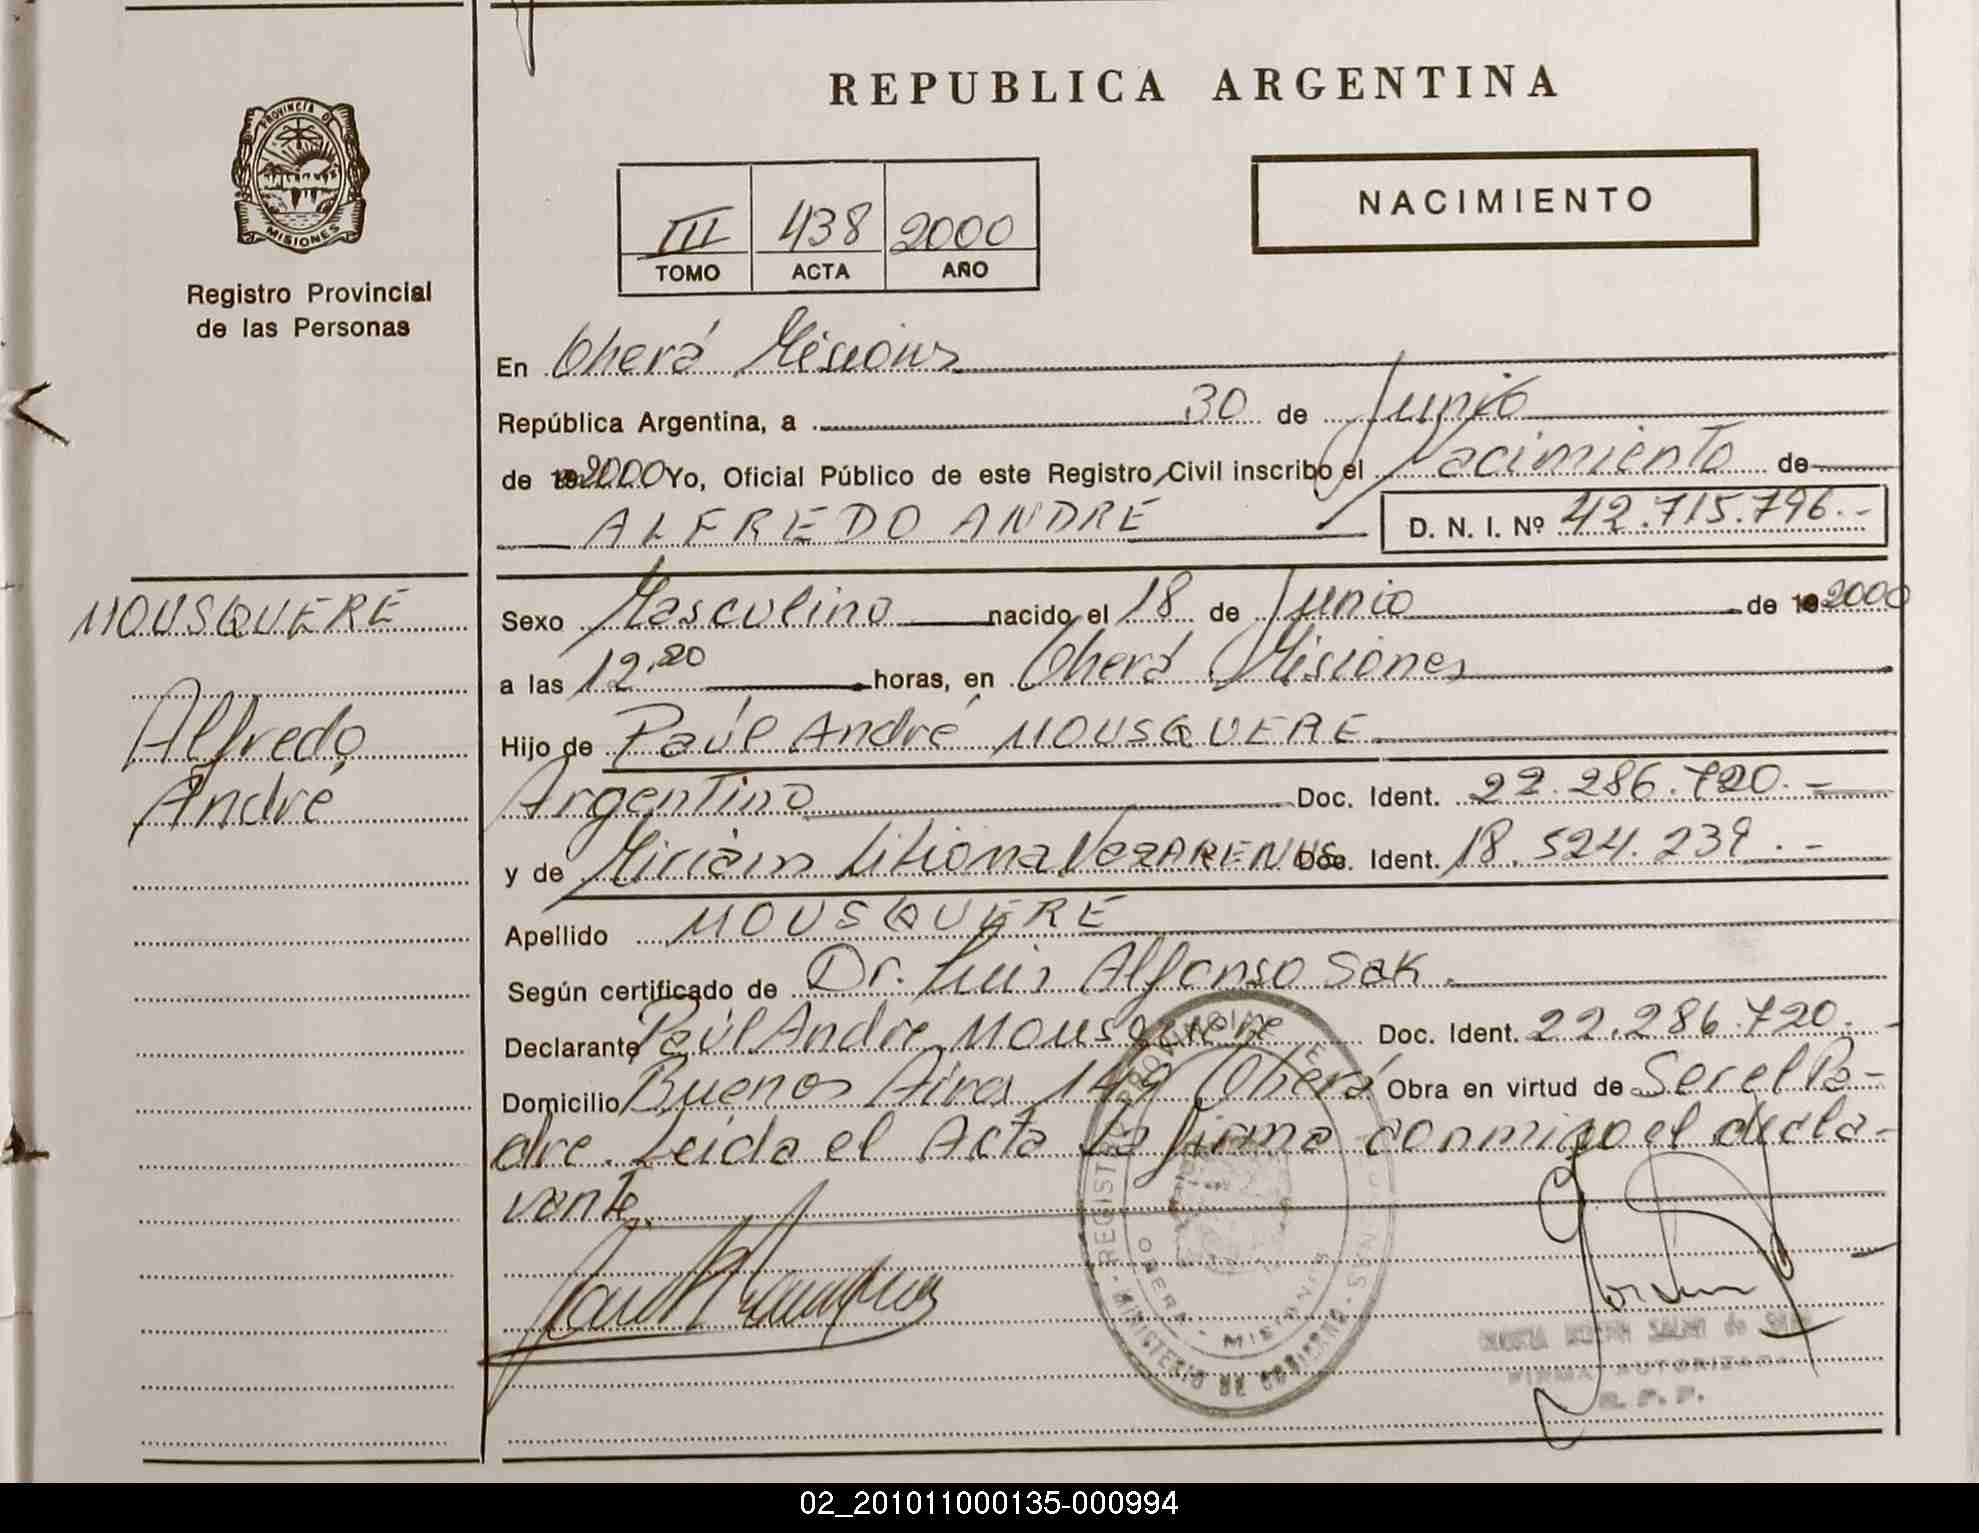 REPUBLICA ARGENTINA
PROVINCIA DE MISIONES
Registro Provincial
de las Personas
NACIMIENTO
III 438 2000
TOMO ACTA AÑO
En Oberá Misiones
República Argentina, a 30 de Junio
de 19 2000 Yo, Oficial Público de este Registro Civil inscribo el Nacimiento de
ALFREDO ANDRE D. N. I. Nº 42.715.796.-
MOUSQUERE
Alfredo
André
Sexo Masculino nacido el 18 de Junio de 19 2000
a las 12,20 horas, en Oberá Misiones
Hijo de Paúl André MOUSQUERE
Argentino Doc. Ident. 22.286.720.-
y de Miriam NAZARENUS Doc. Ident. 18.524.239.-
Apellido MOUSQUERE
Según certificado de Dr. Luis Alfonso Sak.
Declarante Paúl Andre Mousquere Doc. Ident. 22.286.720.-
Domicilio Buenos Aires 149 Oberá Obra en virtud de Ser el Pa-
dre. Leida el Acta la firma conmigo el decla-
rante.
REGISTRO PROVINCIAL DE LAS PERSONAS
OBERA - MISIONES
MINISTERIO DE GOBIERNO
FIRMA AUTORIZADA
R. P. P.
02_201011000135-000994